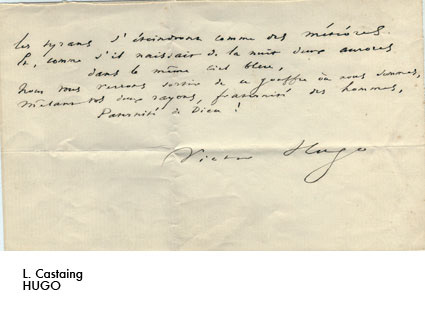 les tyrans s'éteindront comme des météores.
Et, comme s'il naissait de la nuit deux aurores
dans le même ciel bleu,
Nous vous verrons sortir de ce gouffre où nous sommes,
Mêlant vos deux rayons, fraternité des hommes,
Paternité de Dieu !
Victor Hugo
L. Castaing
HUGO